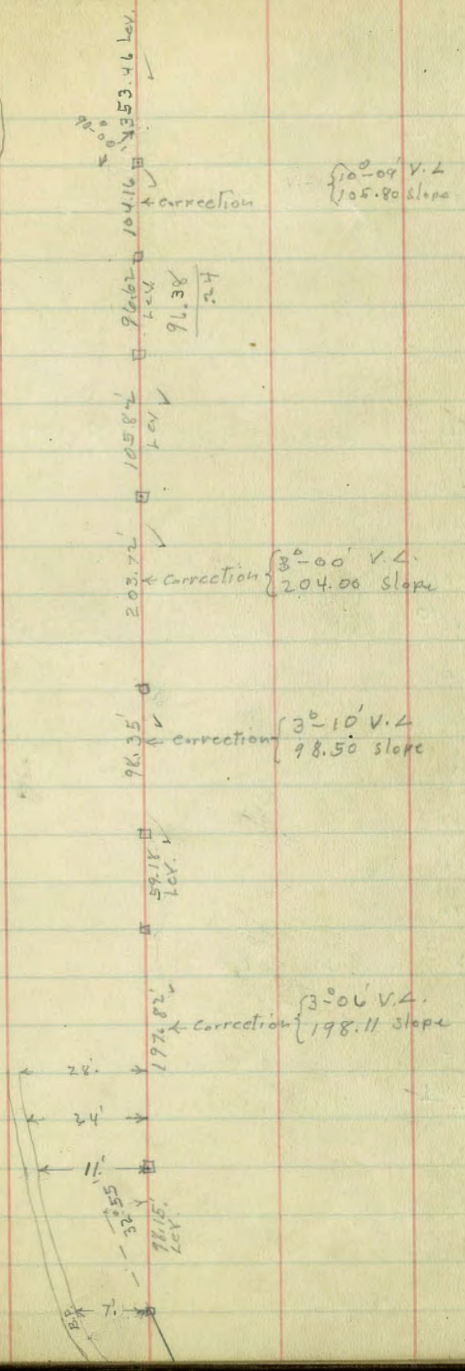 353.46 Lev.
90-00
104.16
← correction
10°-09' V.∠
105.80 slope
96.62
Lev
96.38
.24
105.82'
Lev
203.72'
← correction
3°-00' V.∠.
204.00 slope
98.35'
← correction
3°-10' V.∠
98.50 slope
59.18
Lev.
197.82'
← correction
3-06 V.∠.
198.11 slope
28'
24'
11'
32°55'
98.15'
Lev.
7'